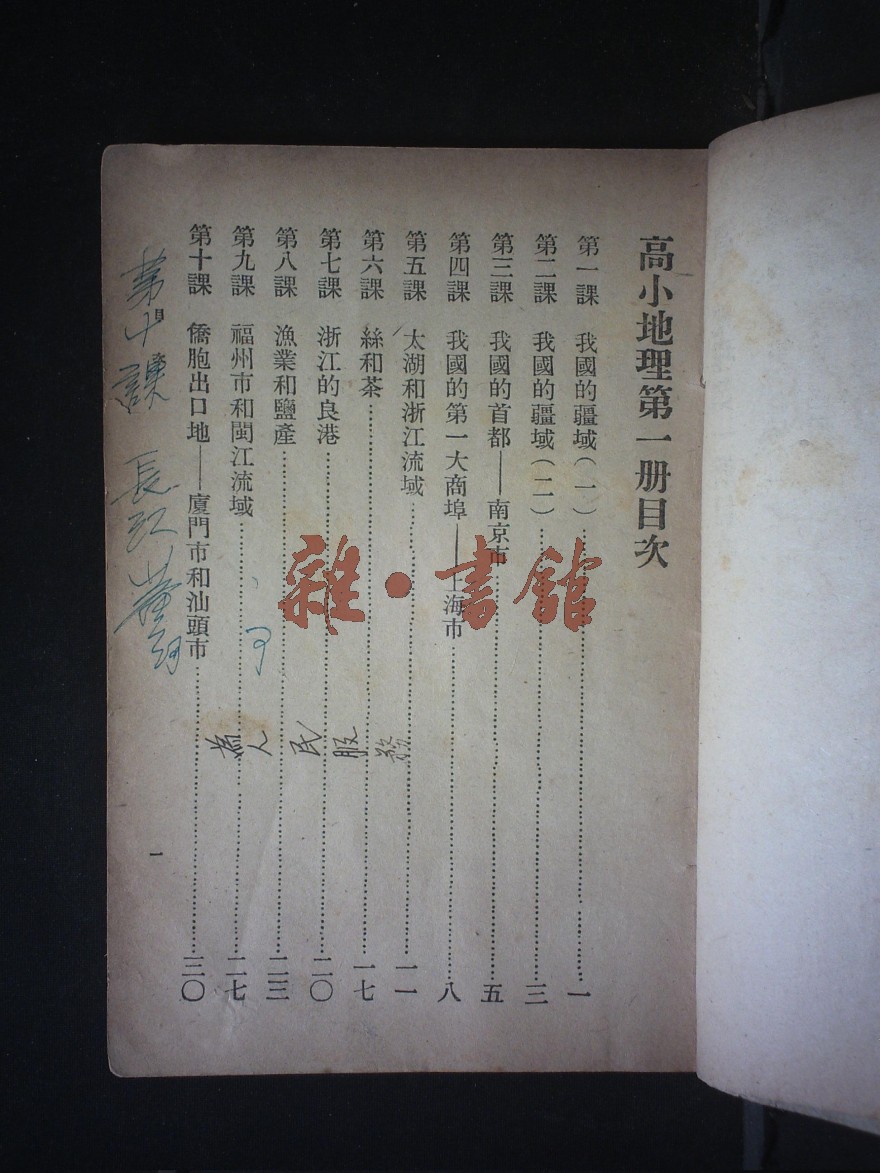 高小地理第一册目次
第一課　我國的疆域(一)……一
第二課　我國的疆域(二)……三
第三課　我國的首都——南京市……五
第四課　我國的第一大商埠——上海市……八
第五課　太湖和浙江流域……一一
第六課　絲和茶……一七
第七課　浙江的良港……二〇
第八課　漁業和鹽產……二三
第九課　福州市和閩江流域……二七
第十課　僑胞出口地——廈門市和汕頭市……三〇
為人民服務
第十課　長江
一
雜·書館